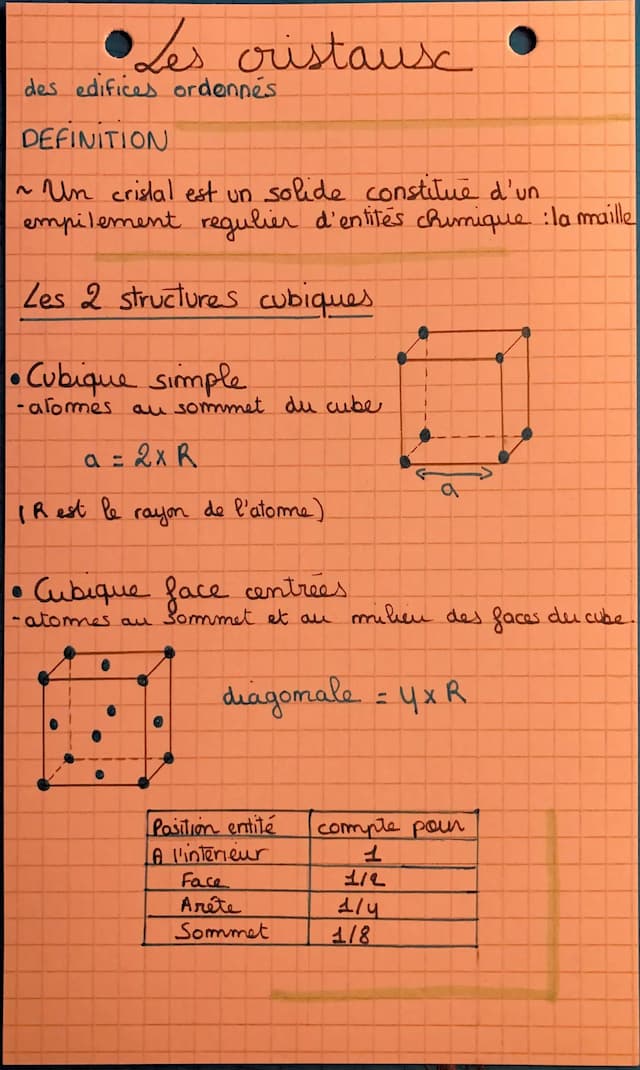 Les cristaux
des edifices ordonnés
DEFINITION
~ Un cristal est un solide constitué d'un
empilement regulier d'entités chimique : la maille
Les 2 structures cubiques
• Cubique simple
- atomes au sommet du cube
a = 2 x R
a
(R est le rayon de l'atome)
• Cubique face centrées
- atomes au sommet et au milieu des faces du cube.
diagonale = 4 x R
Position entité compte pour
A l'intérieur 1
Face 1/2
Arête 1/4
Sommet 1/8